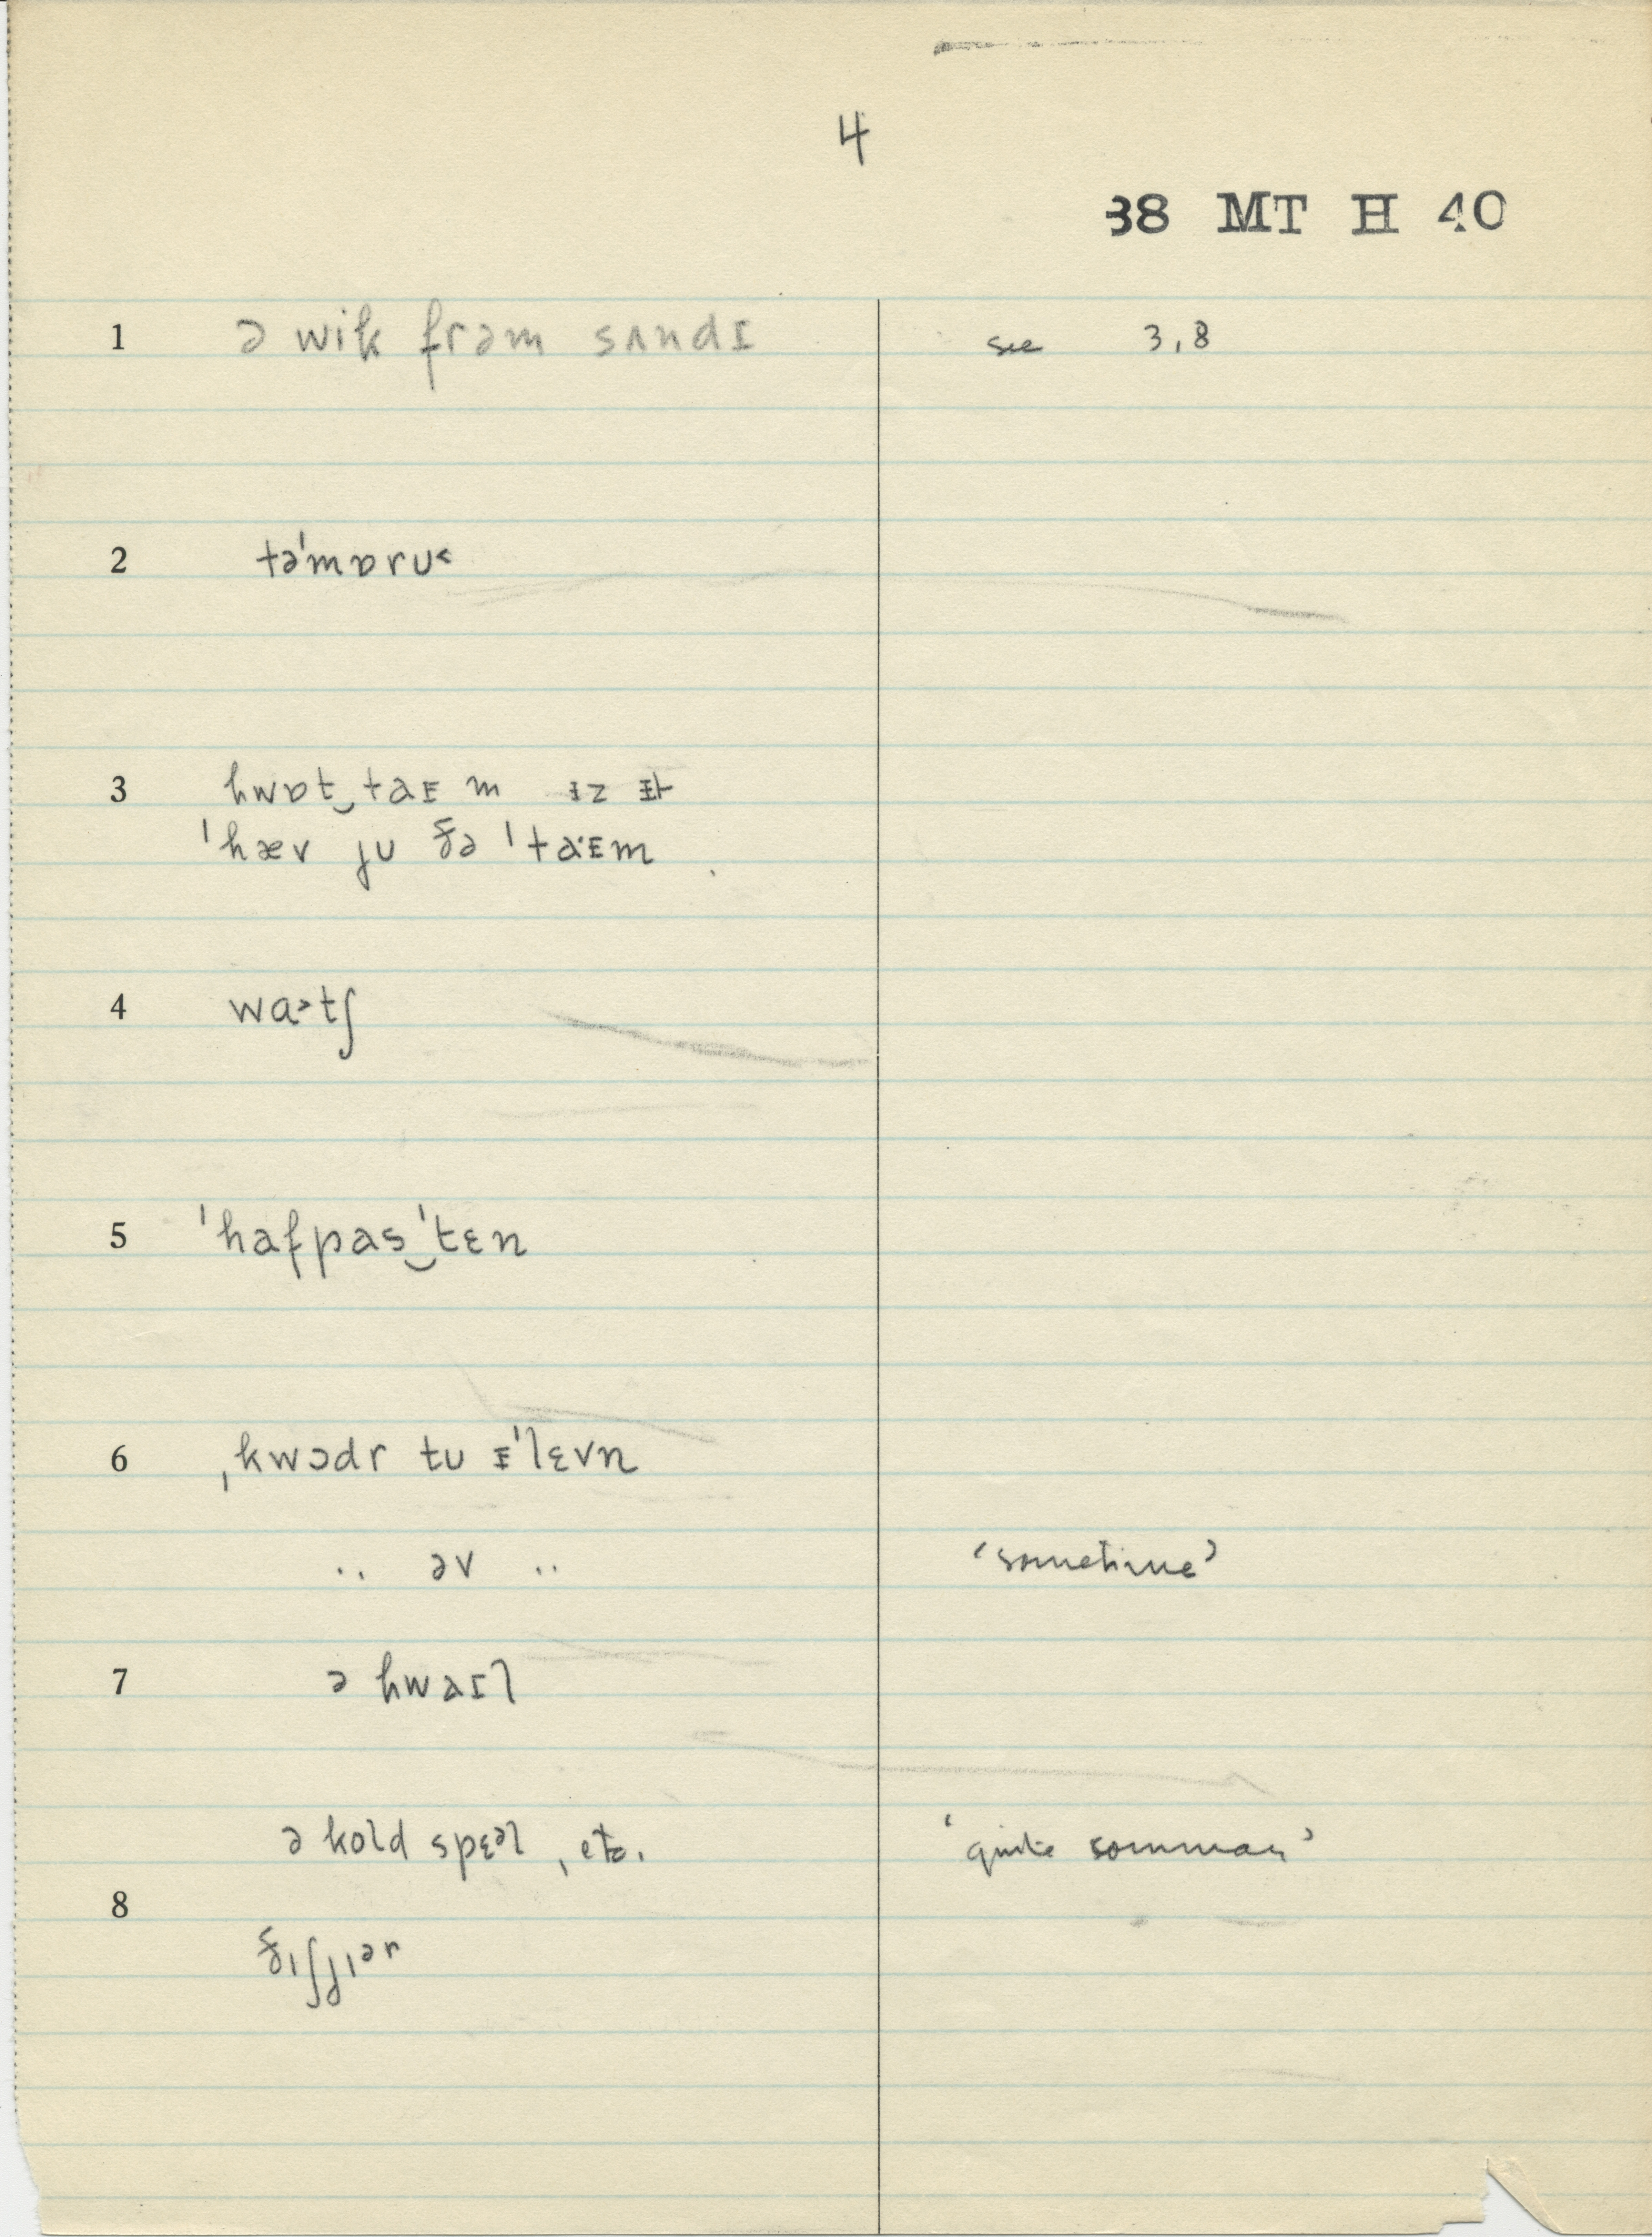 4
38 MT H 40
1 ə wik frəm sʌndɪ see 3,8
2 tə'mɒru˂
3 hwɒt‿taᵻm ᵻz ᵻt
'hæv ju ðə 'ta·ᵻm
4 wɑ˃tʃ
5 'hafpas‿'tɛn
6 ˌkwɔdr tu ᵻ'lɛvn
.. əv .. 'sometime'
7 ə hwaɪl
ə kold spɛᵊl, etc. 'quite common'
8
ðɪʃjɪᵊr